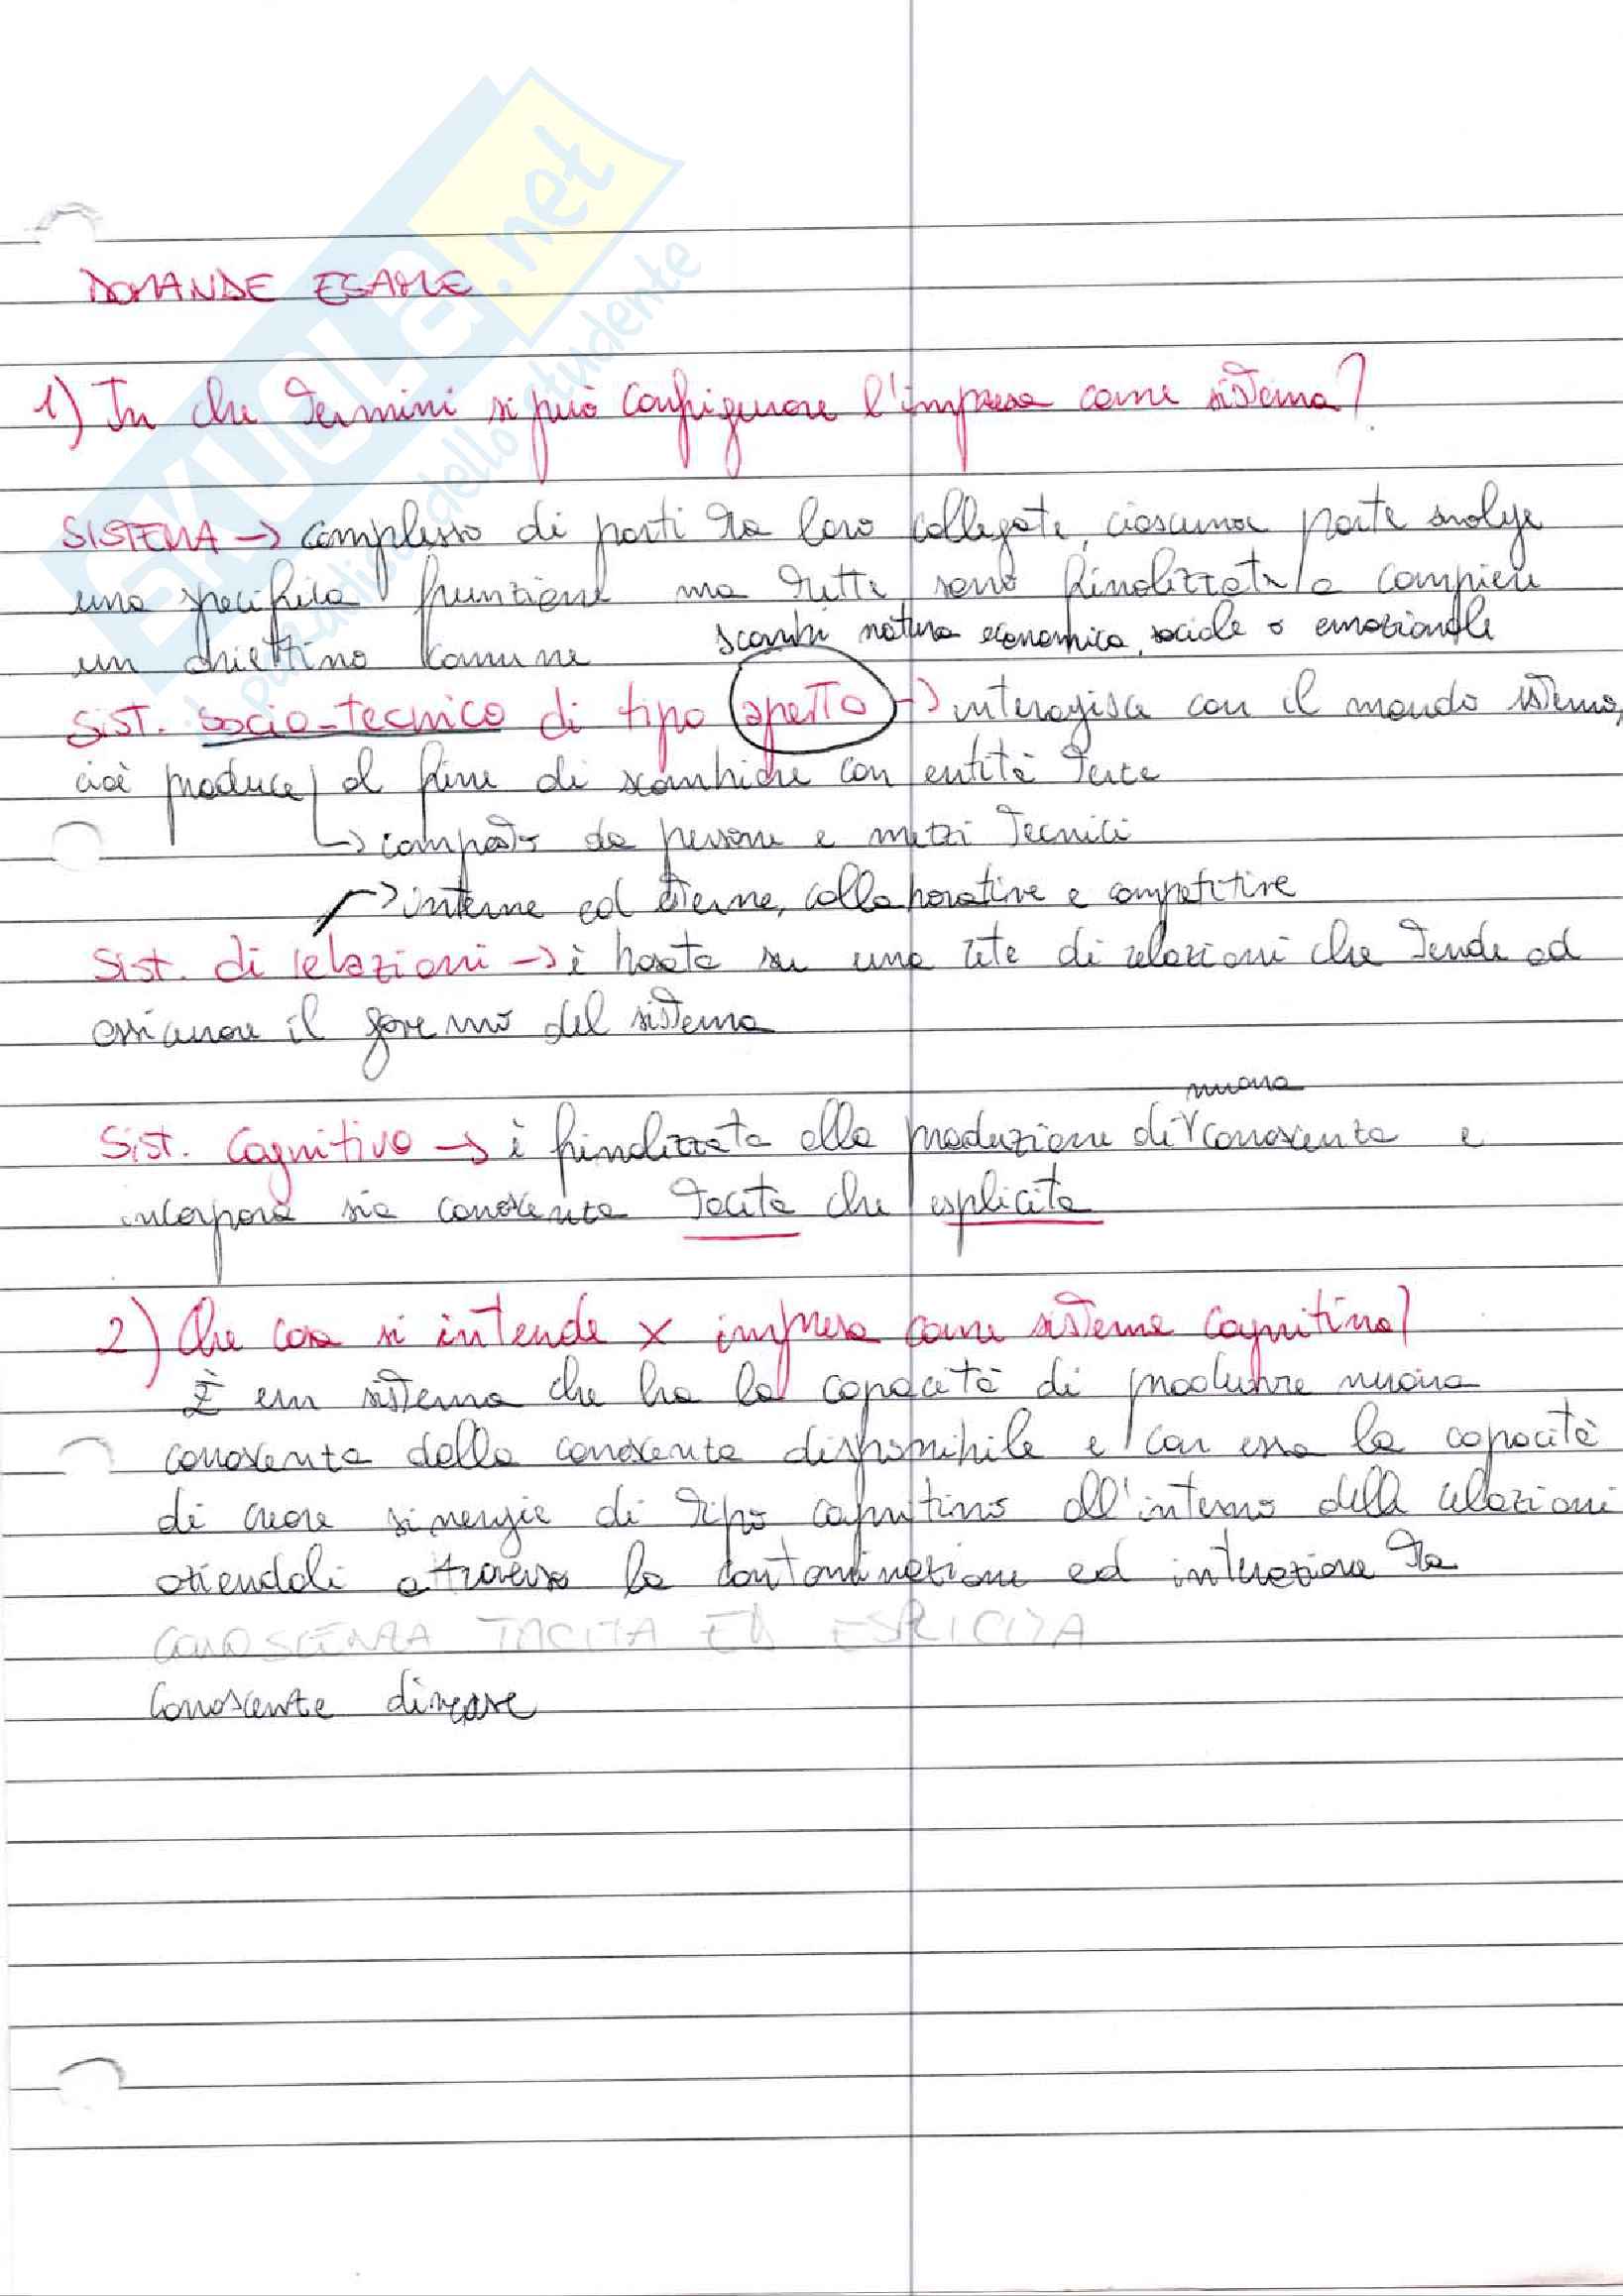 SKUOLA.net
il paradiso dello studente
DOMANDE ESAME
1) In che termini si può configurare l'impresa come sistema?
SISTEMA → complesso di parti tra loro collegate, ciascuna parte svolge
una specifica funzione ma tutte sono finalizzate a compiere
un obiettivo comune
scambi natura economica, sociale o emozionale
Sist. socio-tecnico di tipo aperto → interagisce con il mondo esterno,
cioè produce al fine di scambiare con entità terze
→ composto da persone e mezzi tecnici
→ interne ed esterne, collaborative e competitive
Sist. di relazioni → è basata su una rete di relazioni che tende ad
assicurare il governo del sistema
nuova
Sist. cognitivo → è finalizzata alla produzione di conoscenza e
incorpora sia conoscenza tacita che esplicita
2) Che cosa si intende x impresa come sistema cognitivo?
È un sistema che ha la capacità di produrre nuova
conoscenza dalla conoscenza disponibile e con essa la capacità
di creare sinergie di tipo cognitivo all'interno delle relazioni
aziendali attraverso la contaminazione ed interazione tra
CONOSCENZA TACITA ED ESPLICITA
conoscenze diverse